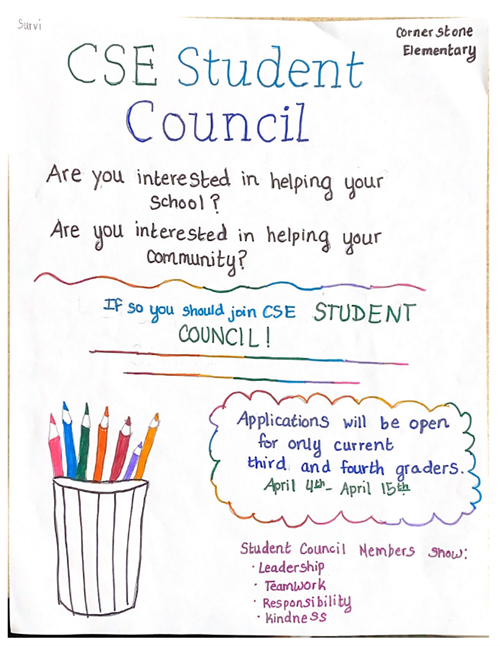 Survi
Cornerstone
Elementary
CSE Student
Council
Are you interested in helping your
School?
Are you interested in helping your
Community?
If so you should join CSE STUDENT
COUNCIL!
Applications will be open
for only current
third and fourth graders.
April 4th - April 15th
Student Council Members show:
· Leadership
· Teamwork
· Responsibility
· Kindness